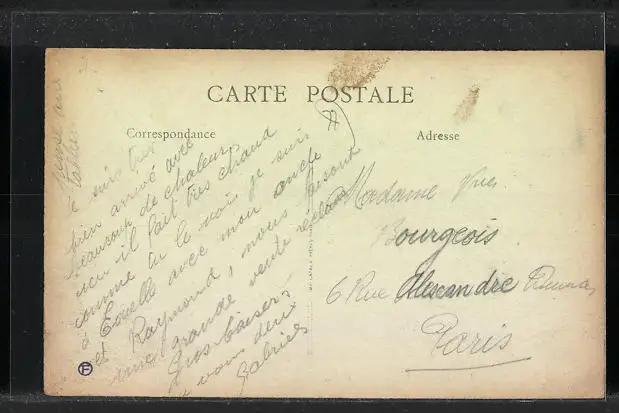 CARTE POSTALE
Correspondance
Adresse
suis très
bien arrivé avec
beaucoup de chaleur
ici il fait très chaud
comme tu le vois je suis
à avec mon oncle
et Raymond, nous faisons
une grande vente réclame
Gros baisers
à vous deux
Gabriel
Madame Vve
Bourgeois
6 Rue Alexandre Dumas
Paris